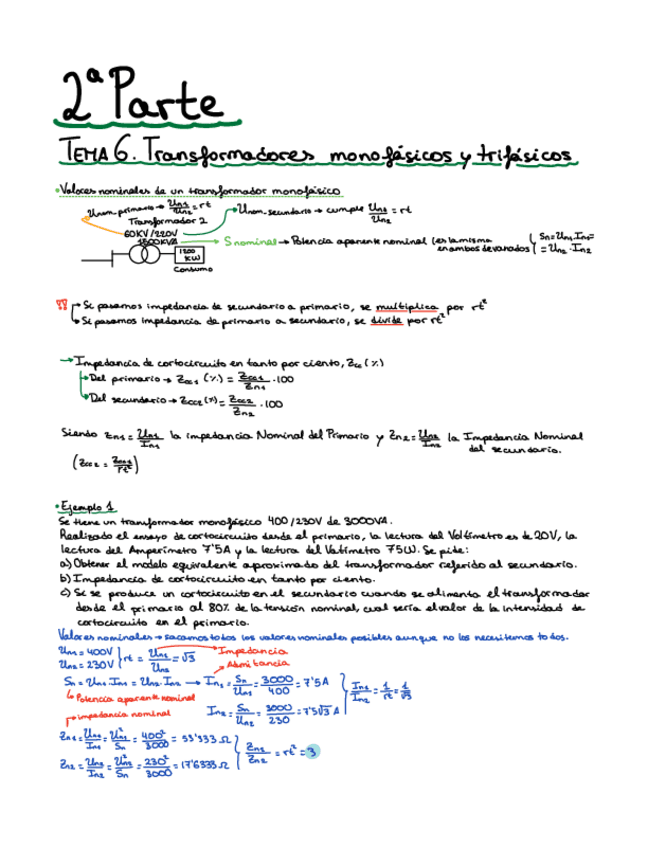 2ª Parte
TEMA 6. Transformadores monofásicos y trifásicos
• Valores nominales de un transformador monofásico
Unom. primario → Un1/Un2 = rt
Unom. secundario → cumple Un1/Un2 = rt
Transformador 2
60KV/220V
1500KVA → S nominal → Potencia aparente nominal (es la misma en ambos devanados) { Sn = Un1·In1 = = Un2·In2
1200 KW
Consumo
!! → Si pasamos impedancia de secundario a primario, se multiplica por rt²
→ Si pasamos impedancia de primario a secundario, se divide por rt²
→ Impedancia de cortocircuito en tanto por ciento, Zcc (%)
→ Del primario → Zcc1 (%) = Zcc1/Zn1 · 100
→ Del secundario → Zcc2 (%) = Zcc2/Zn2 · 100
Siendo Zn1 = Un1/In1 la impedancia Nominal del Primario y Zn2 = Un2/In2 la Impedancia Nominal
del secundario.
(Zcc2 = Zcc1/rt²)
• Ejemplo 1
Se tiene un transformador monofásico 400/230V de 3000VA.
Realizado el ensayo de cortocircuito desde el primario, la lectura del Voltímetro es de 20V, la
lectura del Amperímetro 7'5A y la lectura del Vatímetro 75W. Se pide:
a) Obtener el modelo equivalente aproximado del transformador referido al secundario.
b) Impedancia de cortocircuito en tanto por ciento.
c) Si se produce un cortocircuito en el secundario cuando se alimenta el transformador
desde el primario al 80% de la tensión nominal, cual sería el valor de la intensidad de
cortocircuito en el primario.
Valores nominales → sacamos todos los valores nominales posibles aunque no los necesitemos todos.
Un1 = 400V
Un2 = 230V } rt = Un1/Un2 = √3
Impedancia
Admitancia
Sn = Un1·In1 = Un2·In2 → In1 = Sn/Un1 = 3000/400 = 7'5A
Potencia aparente nominal
In2 = Sn/Un2 = 3000/230 = 7'5√3 A } In1/In2 = 1/rt = 1/√3
impedancia nominal
Zn1 = Un1/In1 = Un1²/Sn = 400²/3000 = 53'333 Ω
Zn2 = Un2/In2 = Un2²/Sn = 230²/3000 = 17'6333 Ω } Zn1/Zn2 = rt² = 3